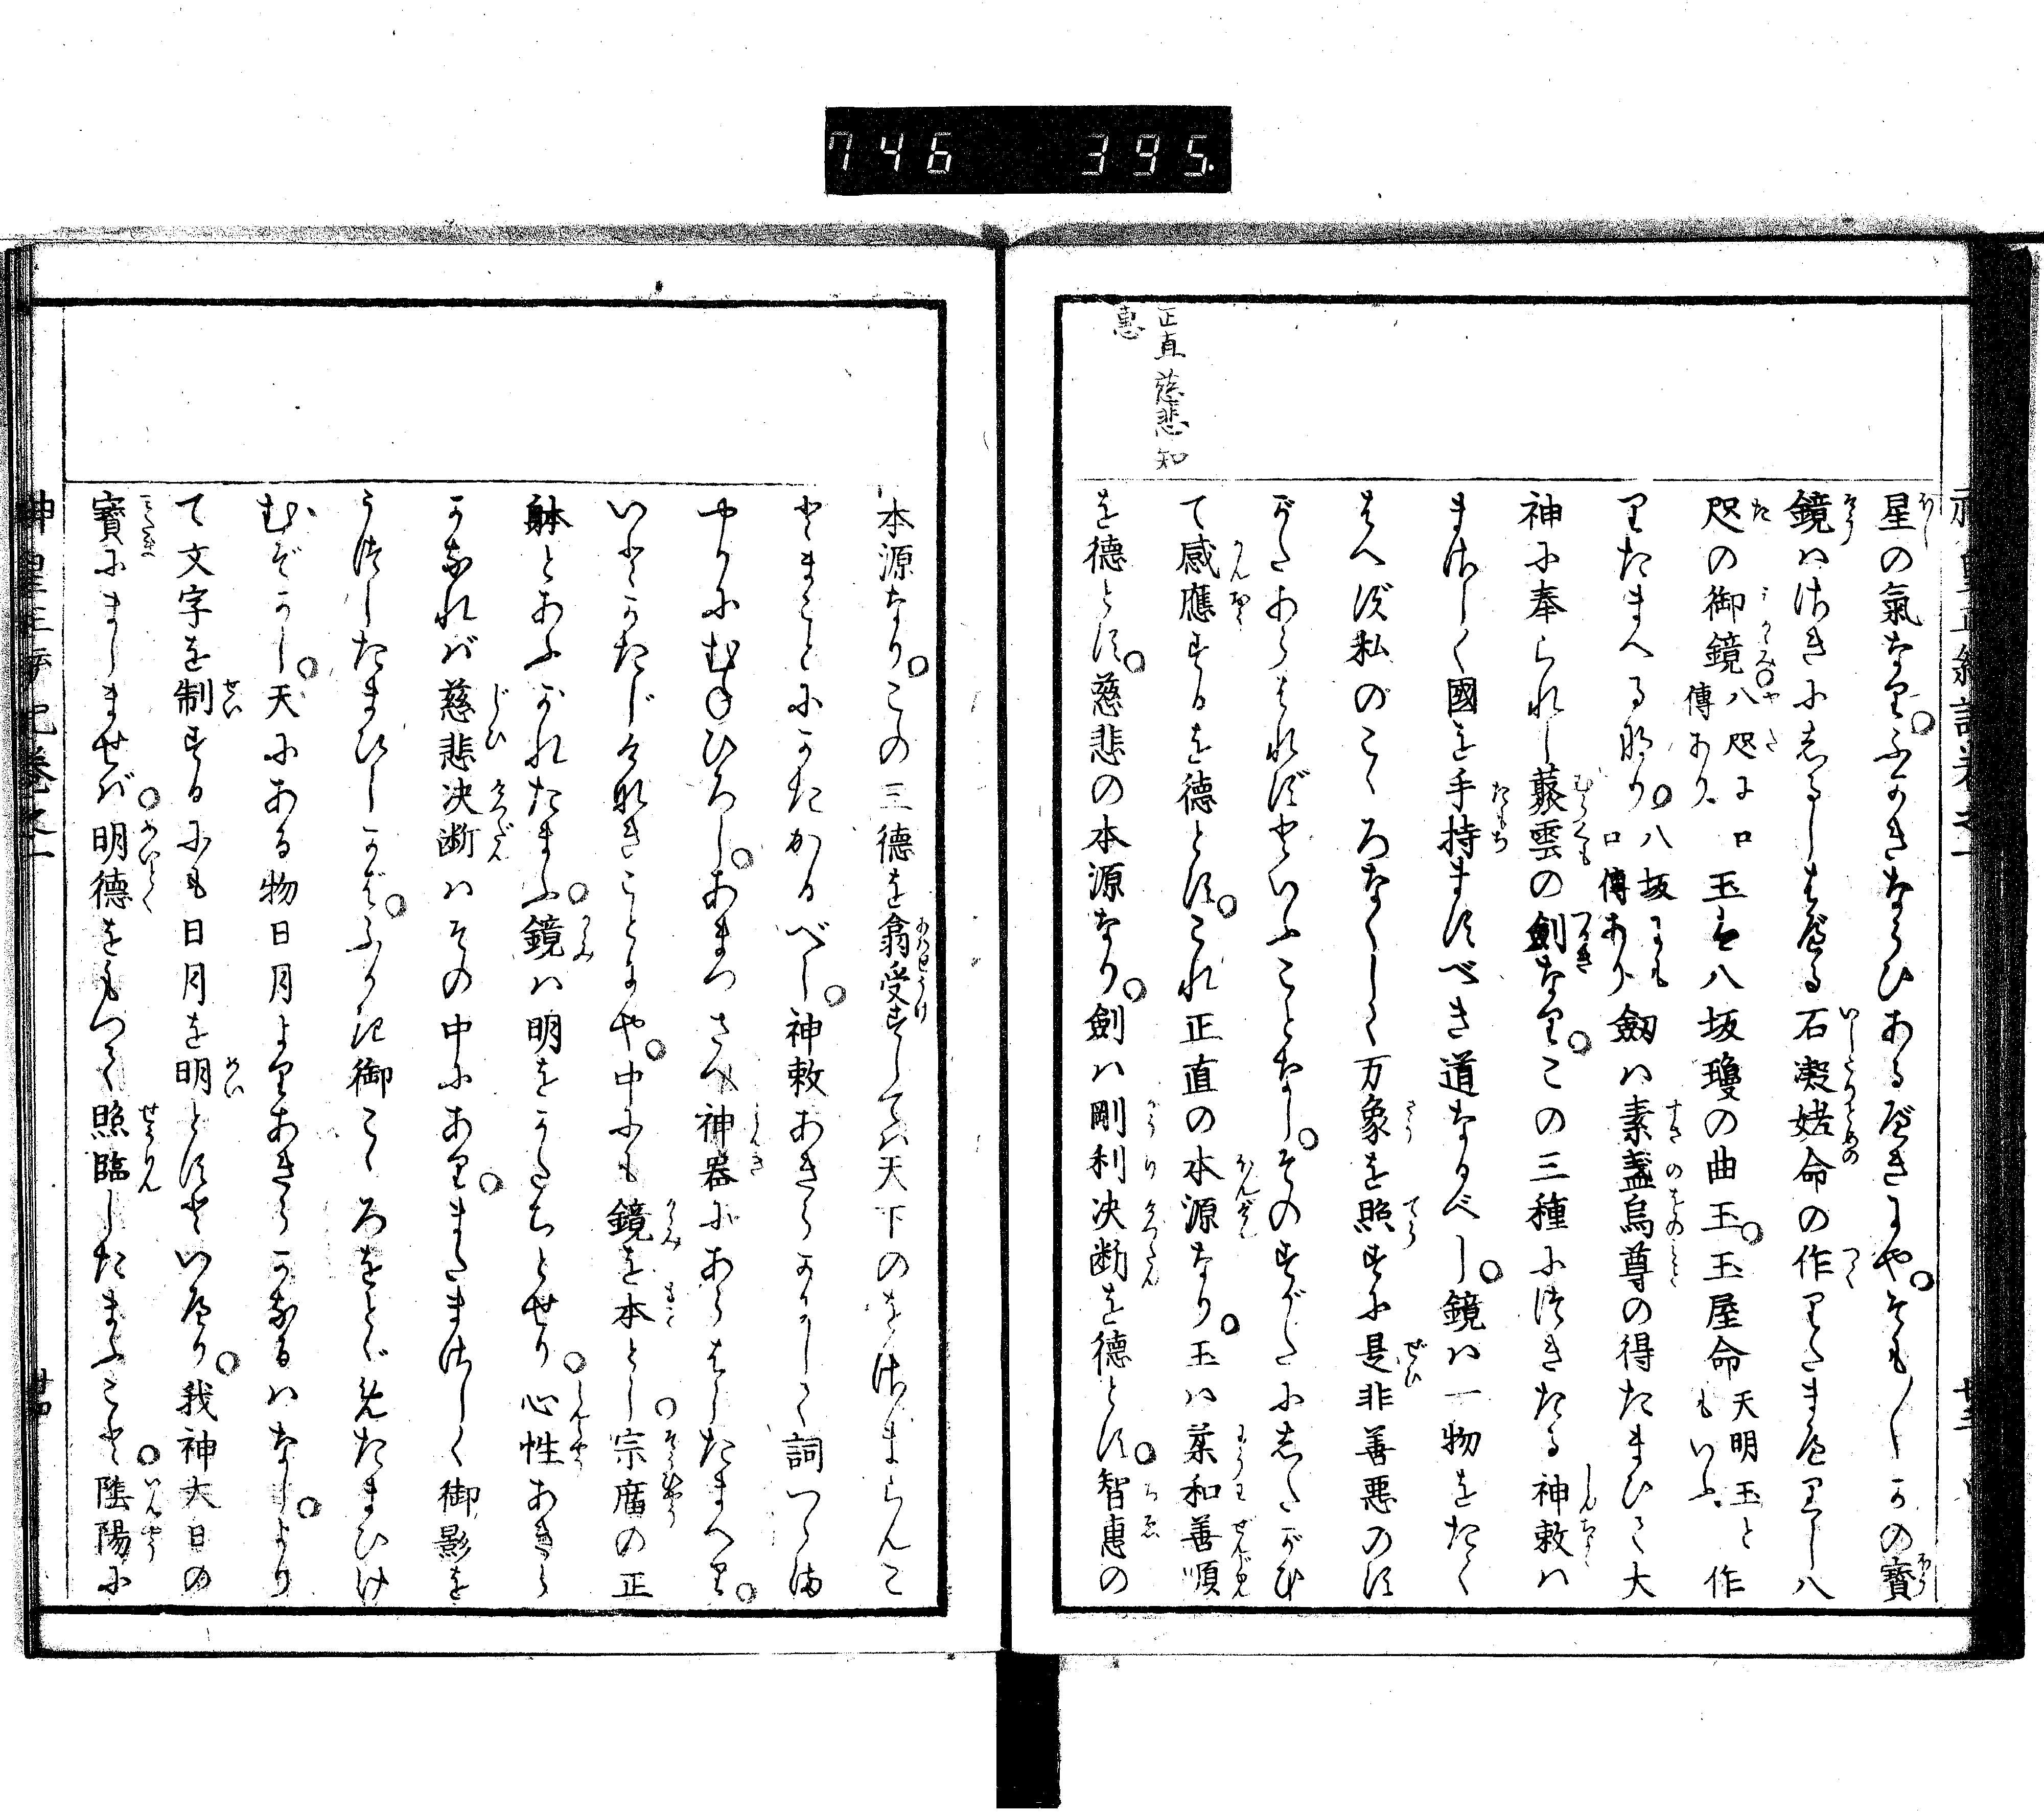 746 395.
正直慈悲知
惠
星の氣なり。ふかきならひあるべきにや。そも〳〵かの寶
鏡ハさきにしるしはべる石凝姥命の作りたまへりし八
咫の御鏡八咫に口傳あり玉は八坂瓊の曲玉。玉屋命天明玉ともいふ作
りたまへるなり。八坂にも口傳あり劔ハ素盞烏尊の得たまひて大
神に奉られし䕺雲の劍なり。この三種につきたる神敕ハ
まさしく國を手持ますべき道なるべし。鏡ハ一物をたく
はへず私のこゝろなくして万象を照すに是非善悪のす
がたあらはれずといふことなし。そのすがたにしたがひ
て感應するを德とす。これ正直の本源なり。玉ハ柔和善順
を德とす。慈悲の本源なり。劍ハ剛利決断を德とす。智惠の
本源なり。この三德を翕受ずしてハ天下のをさまらんこ
とまことにかたかるべし。神敕あきらかにして詞つゝま
やかにむねひろし。あまつさへ神器にあらはしたまへり。
いとかたじけなきことにや。中にも鏡を本とし宗廟の正
躰とあふがれたまふ。鏡ハ明をかたちとせり。心性あきら
かなれバ慈悲決断ハその中にあり。またまさしく御影を
うつしたまひしかば。ふかき御こゝろをとゞめたまひけ
むぞかし。天にある物日月よりあきらかなるハなし。より
て文字を制するにも日月を明とすといへり。我神大日の
寶にましませバ。明德をもつて照臨したまふこと。陰陽に
神皇正統記卷之一
廿四